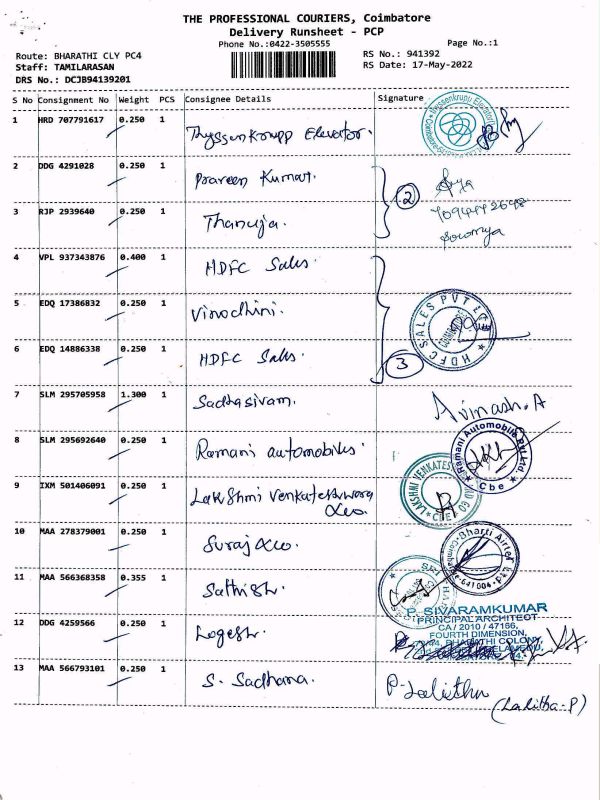 THE PROFESSIONAL COURIERS, Coimbatore
Delivery Runsheet - PCP
Phone No.:0422-3505555
Page No.:1
Route: BHARATHI CLY PC4
RS No.: 941392
Staff: TAMILARASAN
RS Date: 17-May-2022
DRS No.: DCJB94139201
S No Consignment No Weight PCS Consignee Details Signature
1 HRD 707791617 0.250 1 Thyssenkrupp Elevator.
2 DDG 4291028 0.250 1 Praveen Kumar.
2
3 RJP 2939640 0.250 1 Thanuja.
Sowmya
4 VPL 937343876 0.400 1 HDFC Sales.
5 EDQ 17386832 0.250 1 Vinodhini.
HDFC SALES PVT LTD
6 EDQ 14886338 0.250 1 HDFC Sales.
3
7 SLM 295705958 1.300 1 Sadhasivam.
Avinash.A
8 SLM 295692640 0.250 1 Ramani automobiles.
Ramani Automobile Pvt Ltd. Cbe
9 IXM 501406091 0.250 1 Lakshmi Venkateshwara
LAKSHMI VENKATES
CBE
10 MAA 278379001 0.250 1 Suraj
Bharti Airtel
11 MAA 566368358 0.355 1 Sathish.
P-SIVARAMKUMAR
PRINCIPAL ARCHITECT
CA / 2010 / 47166,
FOURTH DIMENSION,
BHARATHI COLONY
12 DDG 4259566 0.250 1 Logesh.
13 MAA 566793101 0.250 1 S. Sadhana.
P-Lalitha
(Lalitha-P)